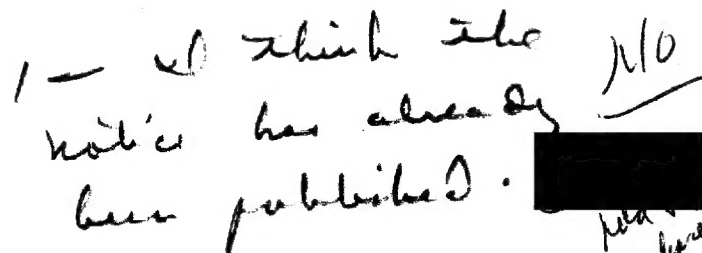 1 — I think the
notice has already
been published.
NO